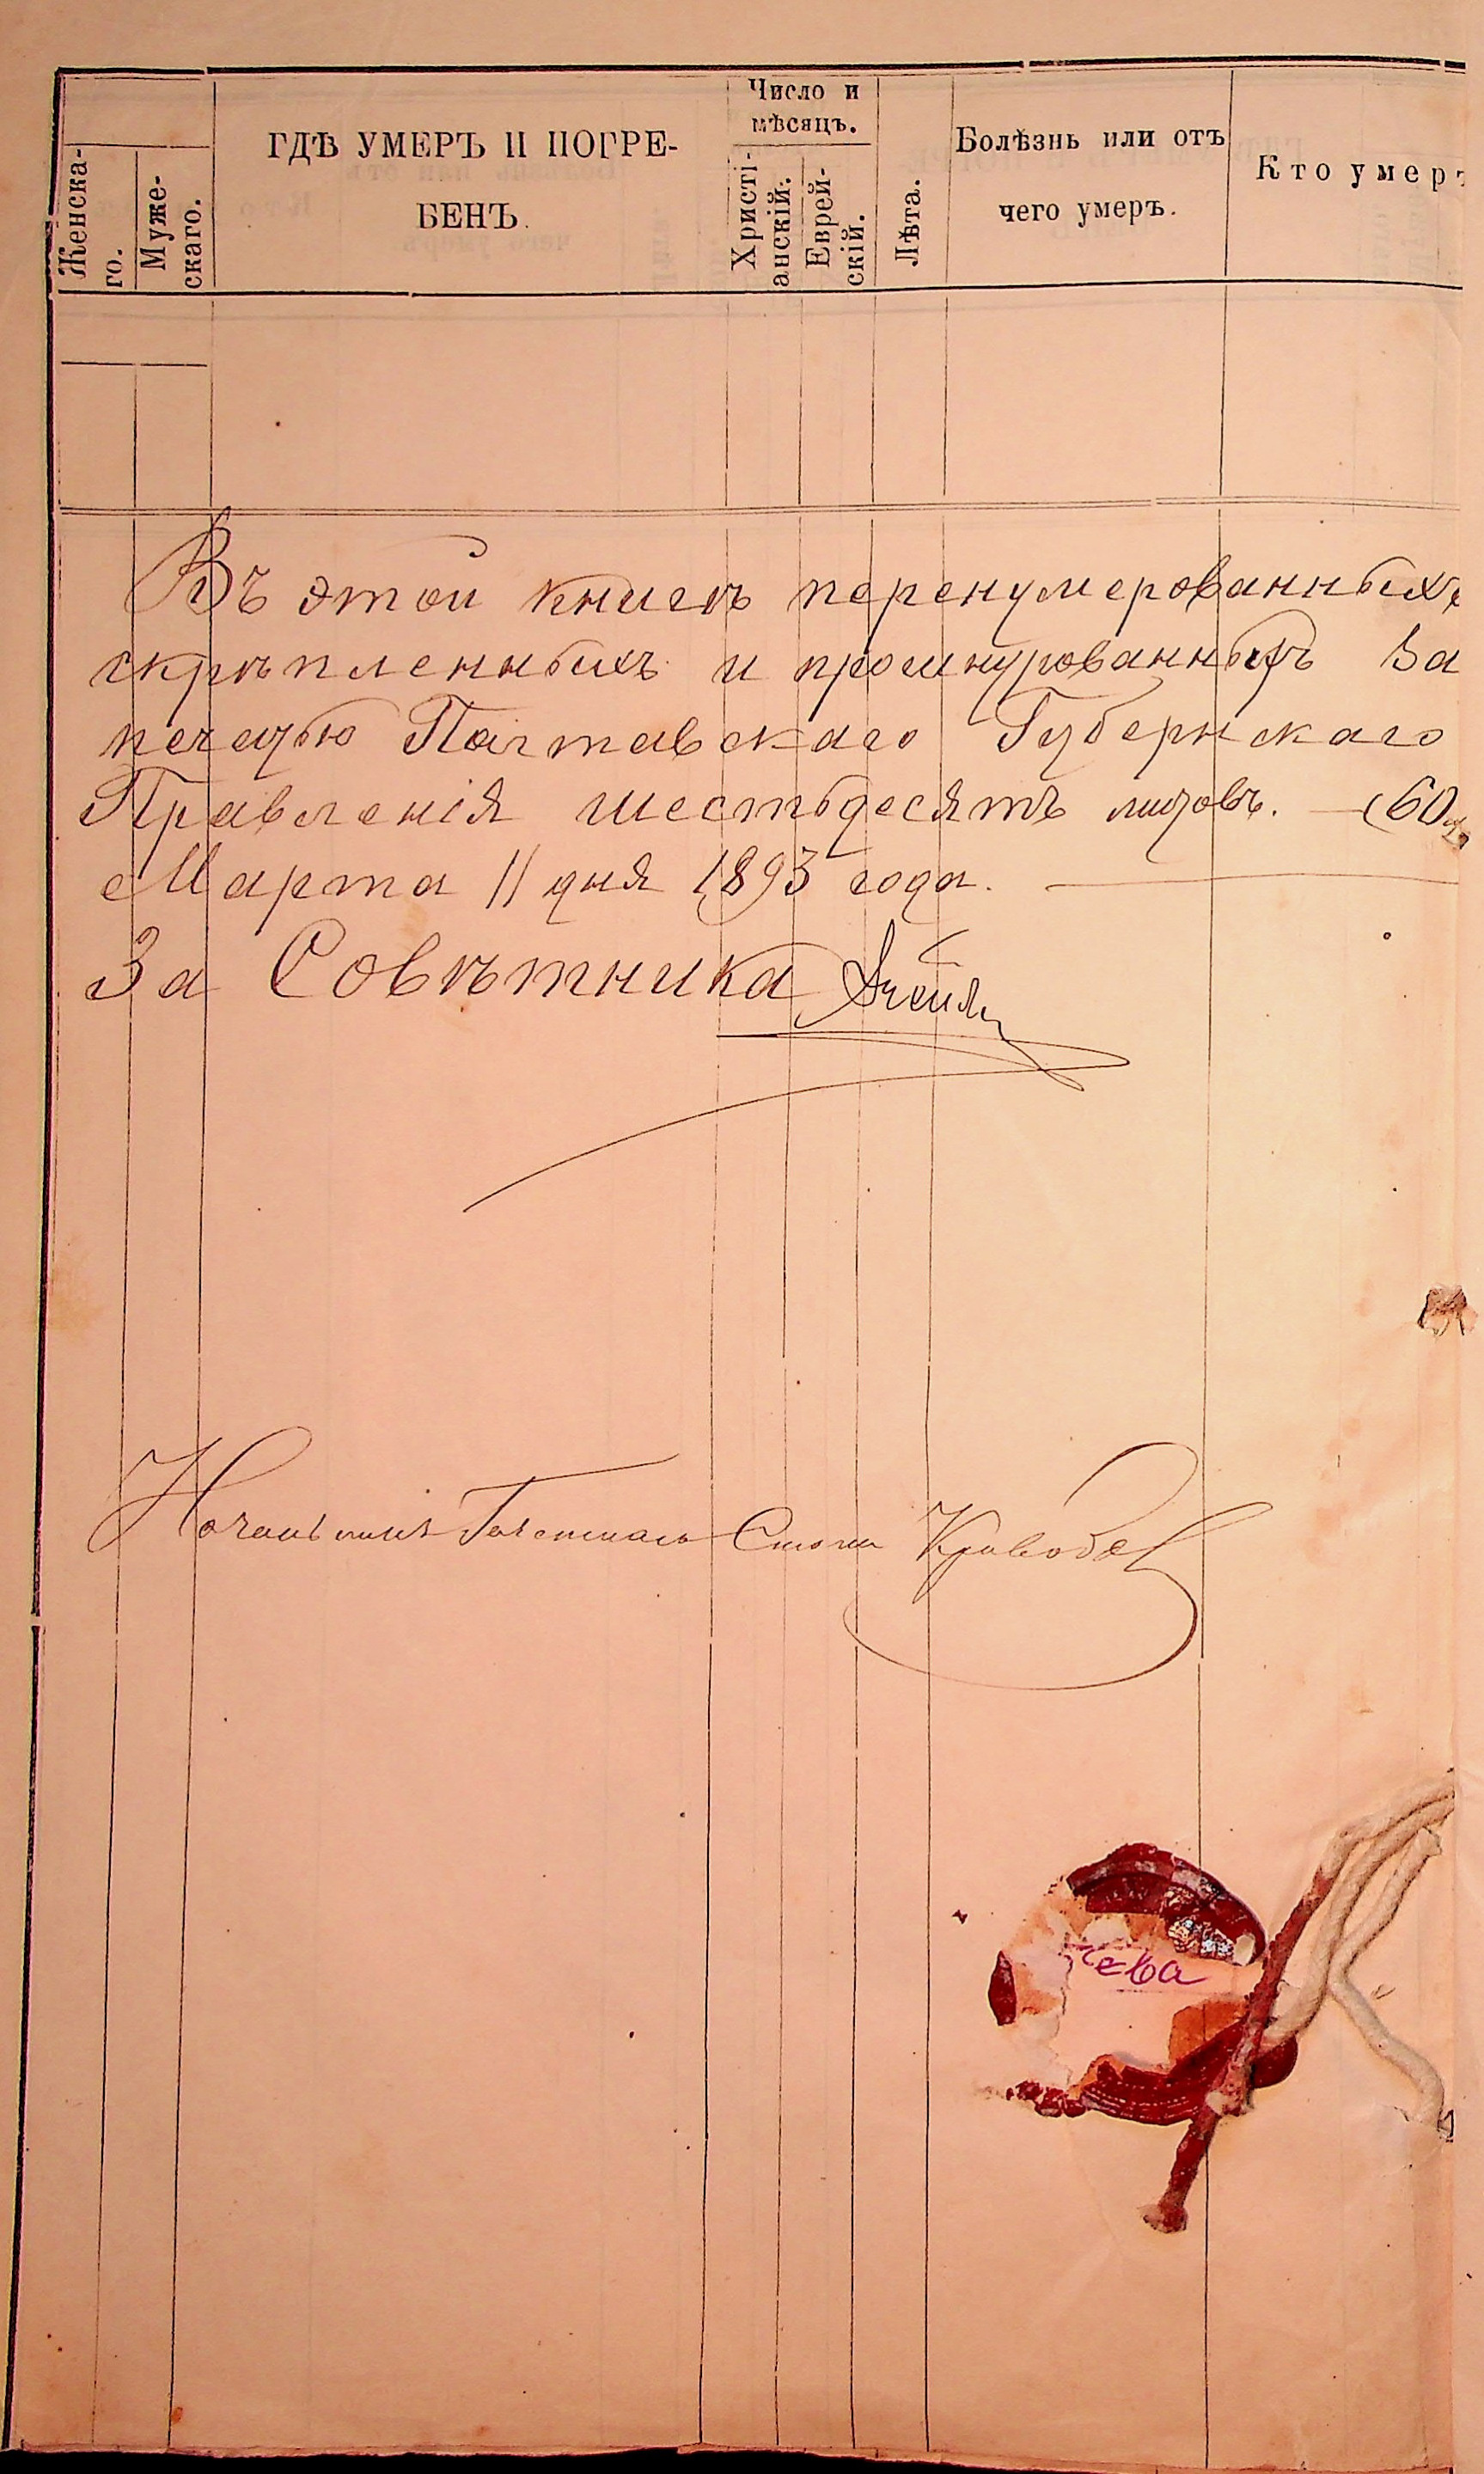 Женска-
го.
Муже-
скаго.
ГДѢ УМЕРЪ И ПОГРЕ-
БЕНЪ.
Число и
мѣсяцъ.
Христі-
анскій.
Еврей-
скій.
Лѣта.
Болѣзнь или отъ
чего умеръ.
Кто умеръ
Въ этой книгѣ перенумерованныхъ
скрѣпленныхъ и прошнурованныхъ за
печатью Полтавскаго Губернскаго
Правленія шестьдесятъ листовъ. — (60
Марта 11 дня 1893 года.
За Совѣтника
Начальникъ Стола